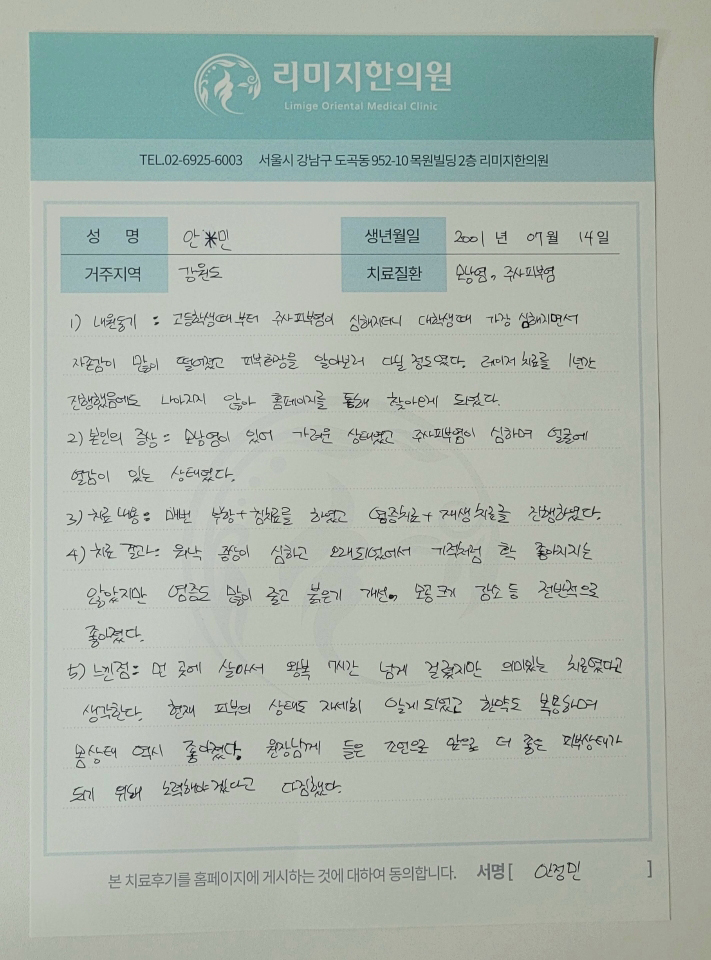 리미지한의원
Limige Oriental Medical Clinic
TEL.02-6925-6003 서울시 강남구 도곡동 952-10 목원빌딩 2층 리미지한의원
성 명 안*민 생년월일 2001년 07월 14일
거주지역 강원도 치료질환 손낭염, 주사피부염
1) 내원동기 : 고등학생때부터 주사피부염이 심해지더니 대학생때 가장 심해지면서
자존감이 많이 떨어졌고 피부현장을 알아보러 다닐 정도였다. 레이저 치료를 1년간
진행했음에도 나아지지 않아 홈페이지를 통해 찾아오게 되었다.
2) 본인의 증상 : 손낭염이 있어 가려운 상태였고 주사피부염이 심하여 얼굴에
열감이 있는 상태였다.
3) 치료내용 : 매번 부항+침치료를 하였고 염증치료+재생치료를 진행하였다.
4) 치료 결과 : 워낙 증상이 심하고 오래되었어서 기적처럼 확 좋아지지는
않았지만 염증도 많이 줄고 붉은기 개선, 모공크기 감소 등 전반적으로
좋아졌다.
5) 느낀점 : 먼 곳에 살아서 왕복 7시간 넘게 걸렸지만 의미있는 치료였다고
생각한다. 현재 피부의 상태도 자세히 알게 되었고 한약도 복용하여
몸상태 역시 좋아졌다. 원장님께 들은 조언으로 앞으로 더 좋은 피부상태가
되기 위해 노력해야겠다고 다짐했다.
본 치료후기를 홈페이지에 게시하는 것에 대하여 동의합니다. 서명 [ 안정민 ]